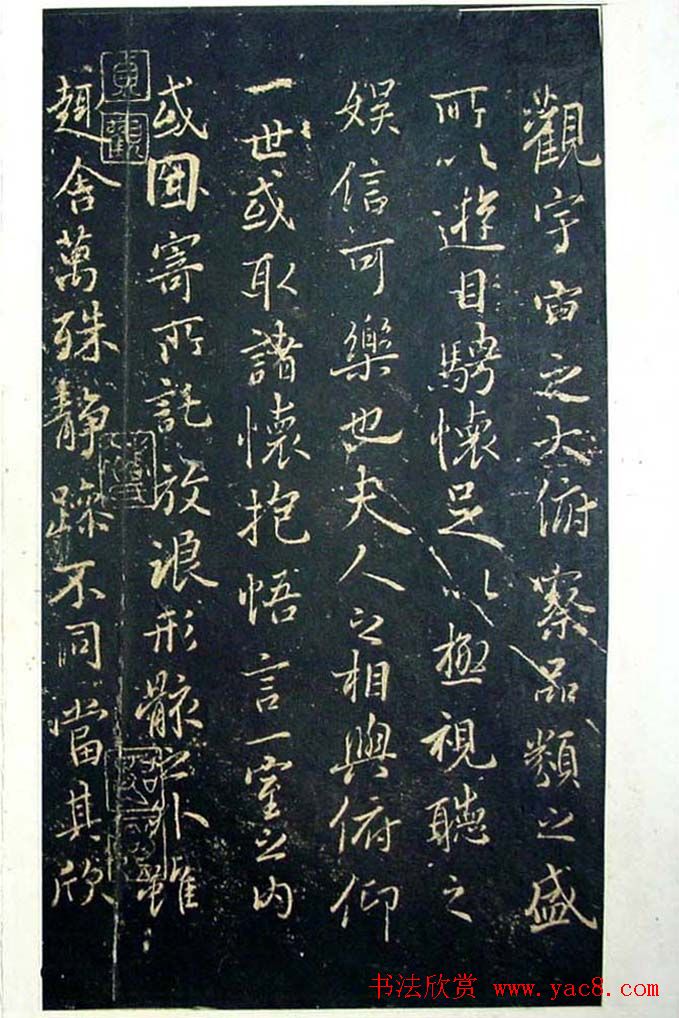 觀宇宙之大俯察品類之盛
所以遊目騁懷足以極視聽之
娛信可樂也夫人之相與俯仰
一世或取諸懷抱悟言一室之內
或因寄所託放浪形骸之外雖
趣舍萬殊靜躁不同當其欣
书法欣赏 www.yac8.com